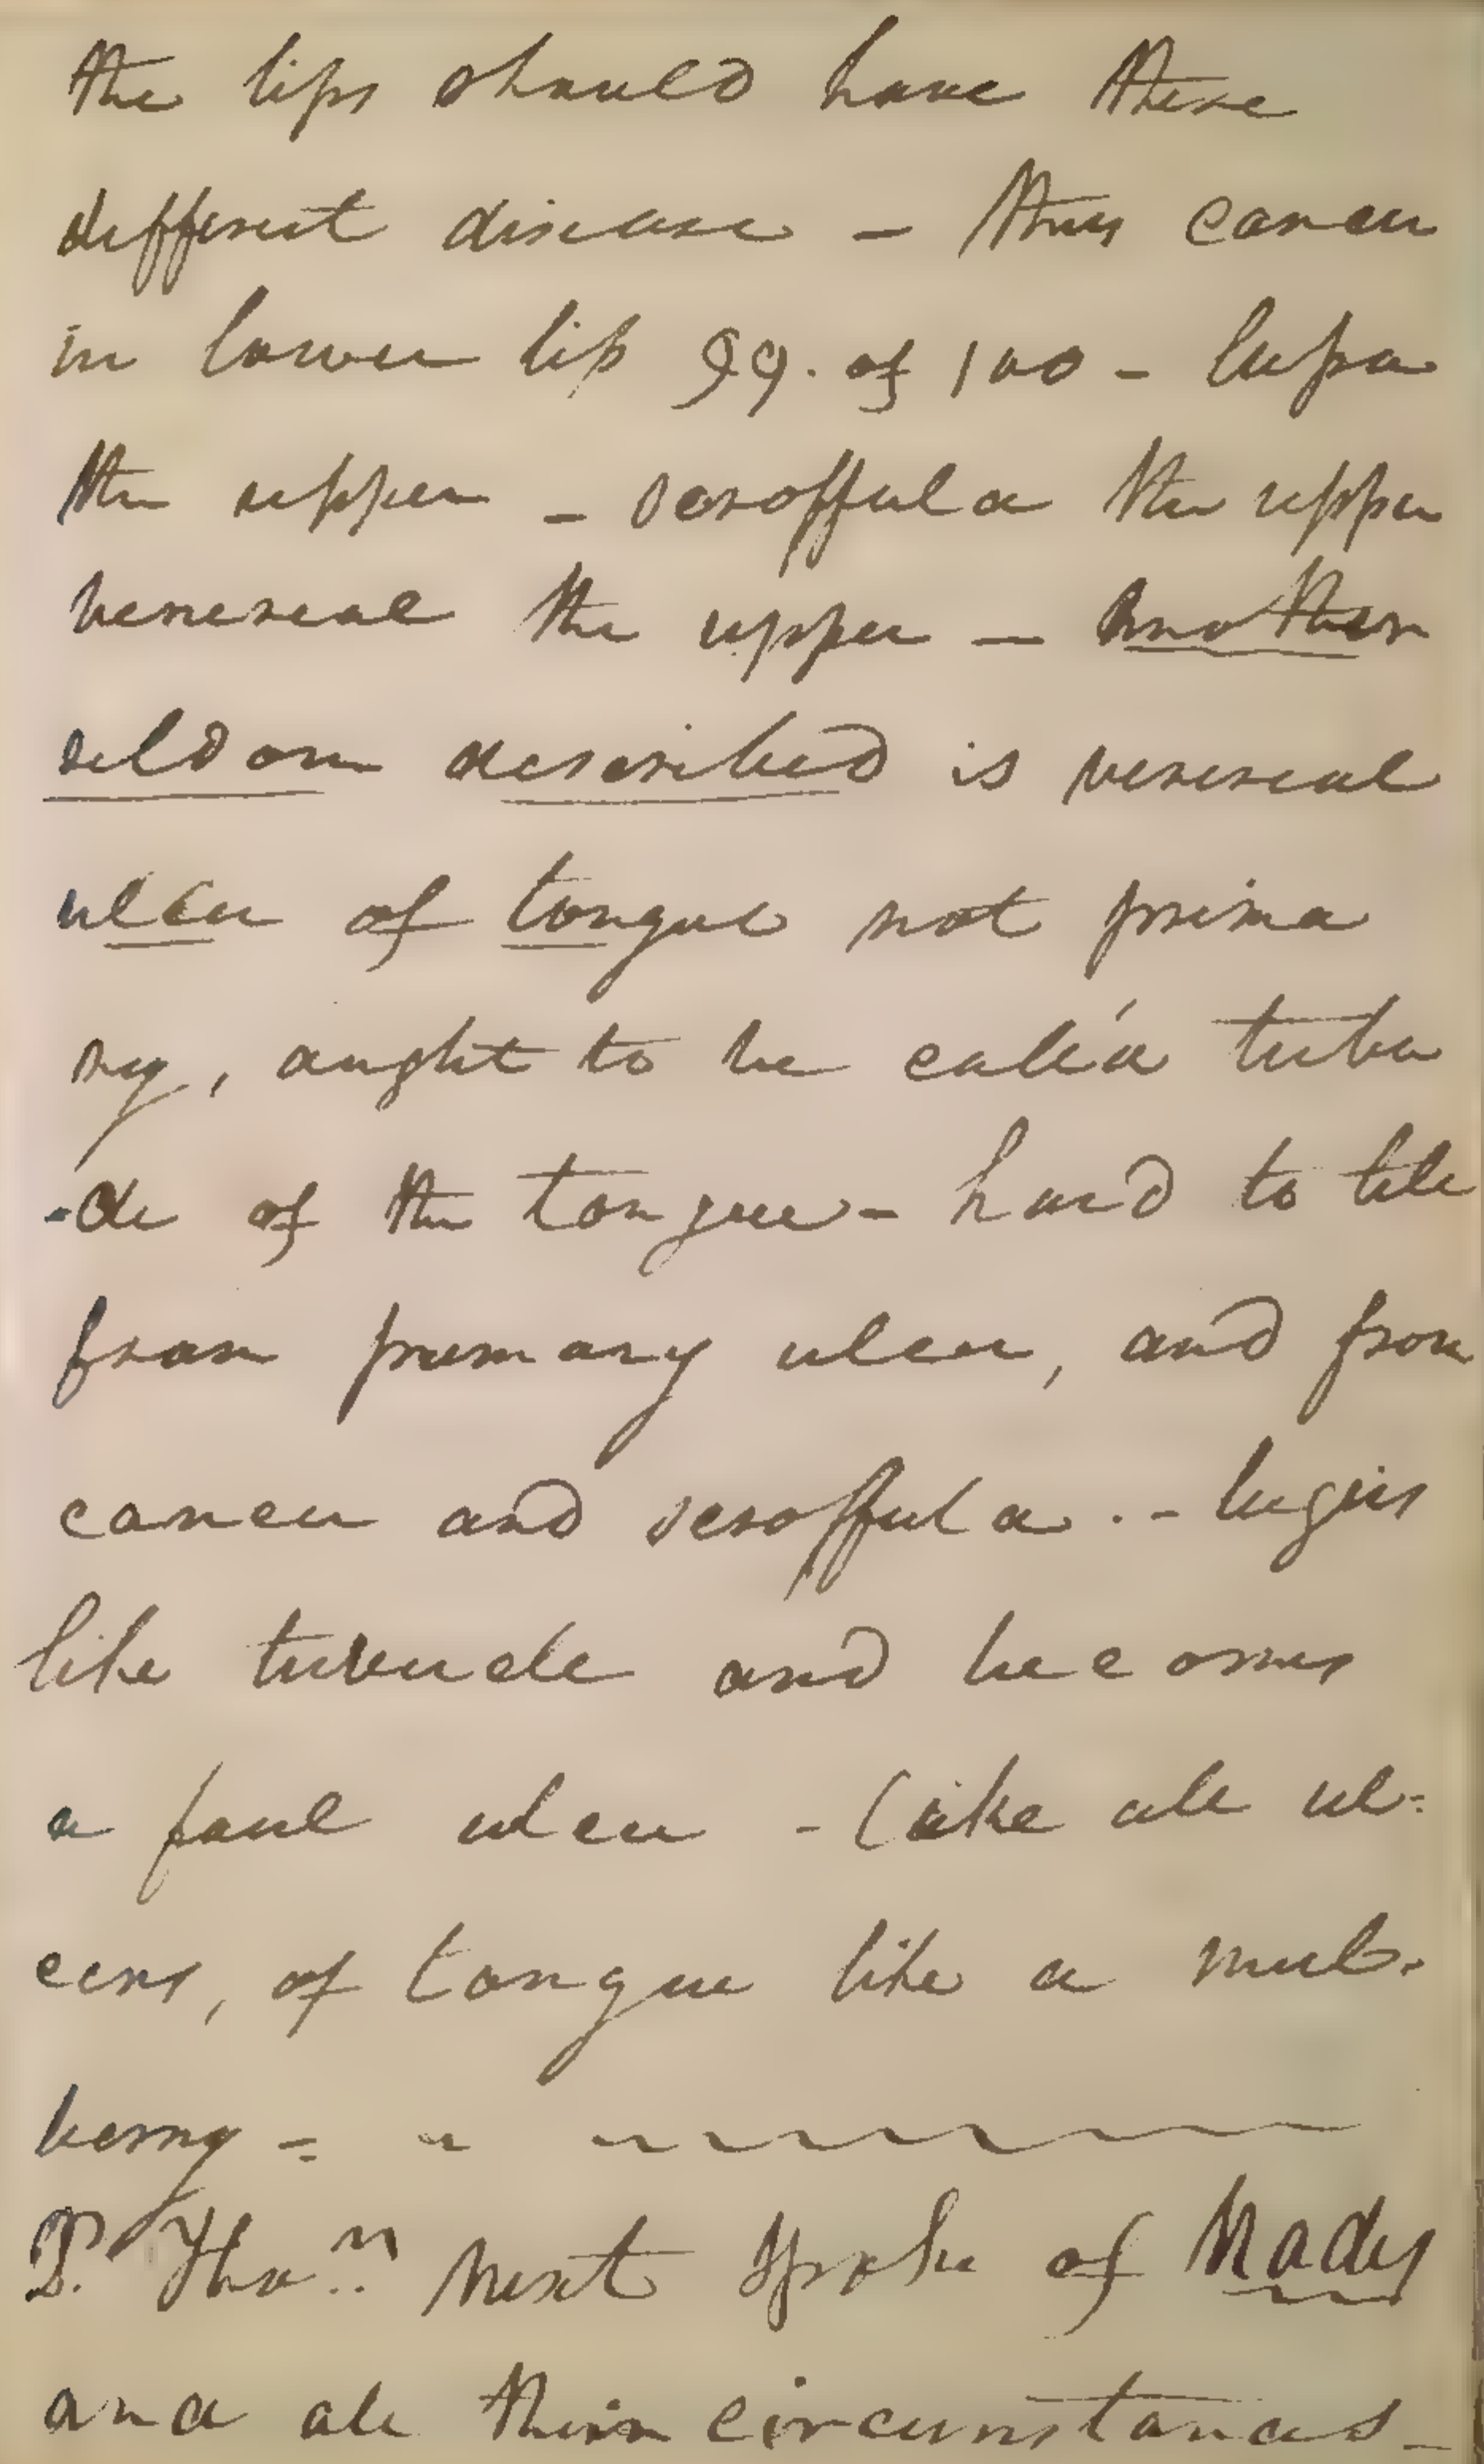 the lips should have these
different disease - thus cancer
in lower lip 99. of 100 - lupa
the upper - scroffula the upper
venereal the upper - Another
seldom described is venereal
ulcer of tongue not prima
ry, aught to be call'd tuber
-cle of the tongue - hard to tell
from primary ulcer, and from
cancer and scroffula .- begins
like tubercle and becomes
a foul ulcer - like all ul=
cers, of tongue like a mul-
berry =
Dr. Tho.n next spoke of Nodes
and all their circumstances -